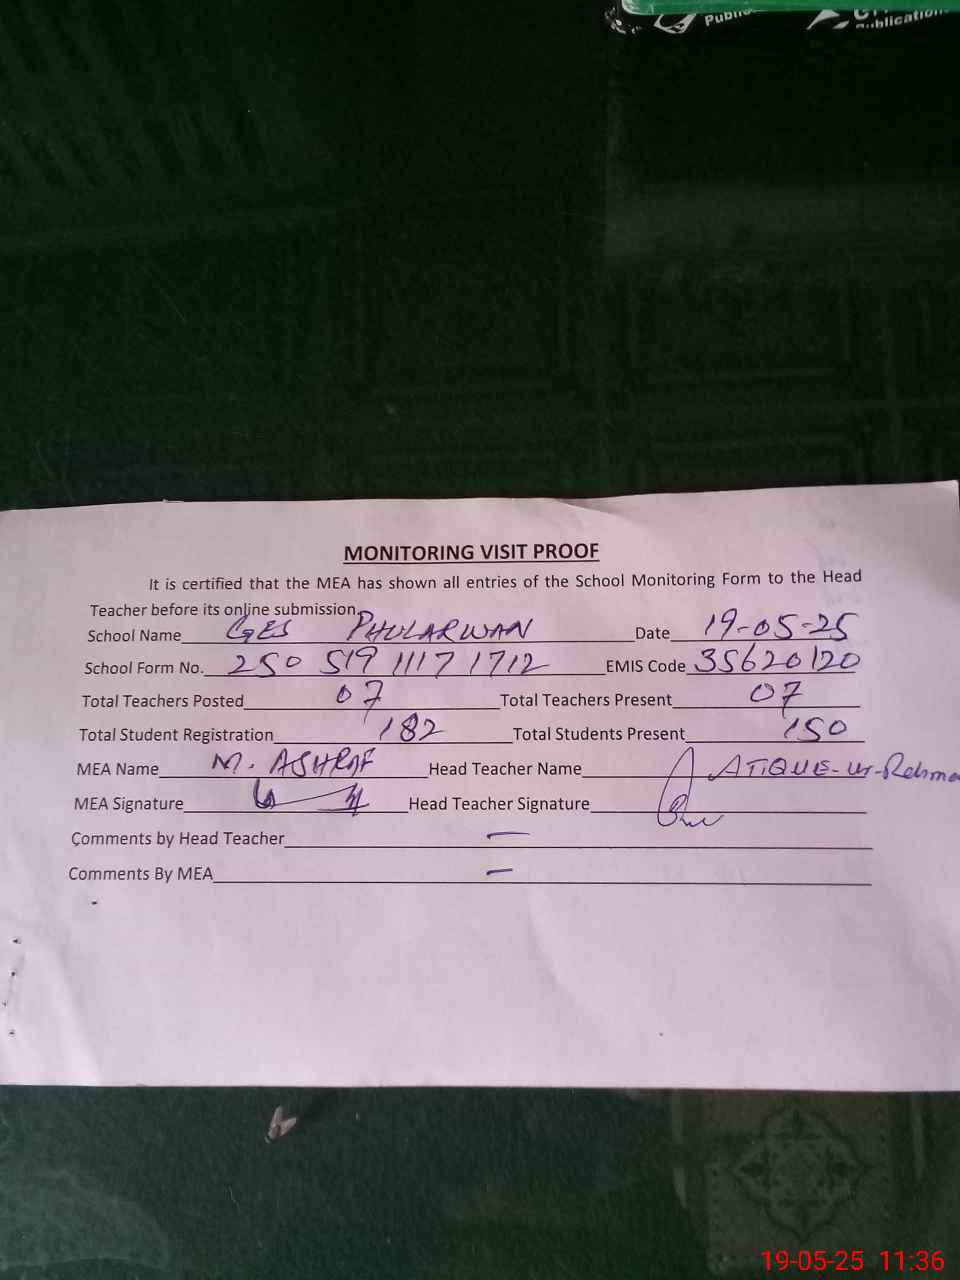 Publi
publication
MONITORING VISIT PROOF
It is certified that the MEA has shown all entries of the School Monitoring Form to the Head
Teacher before its online submission.
School Name GES PHULARWAN Date 19-05-25
School Form No. 250 519 1117 1712 EMIS Code 35620120
Total Teachers Posted 07 Total Teachers Present 07
Total Student Registration 182 Total Students Present 150
MEA Name M. ASHRAF Head Teacher Name ATIQUE-ur-Rehma
MEA Signature Head Teacher Signature
Comments by Head Teacher —
Comments By MEA —
19-05-25 11:36